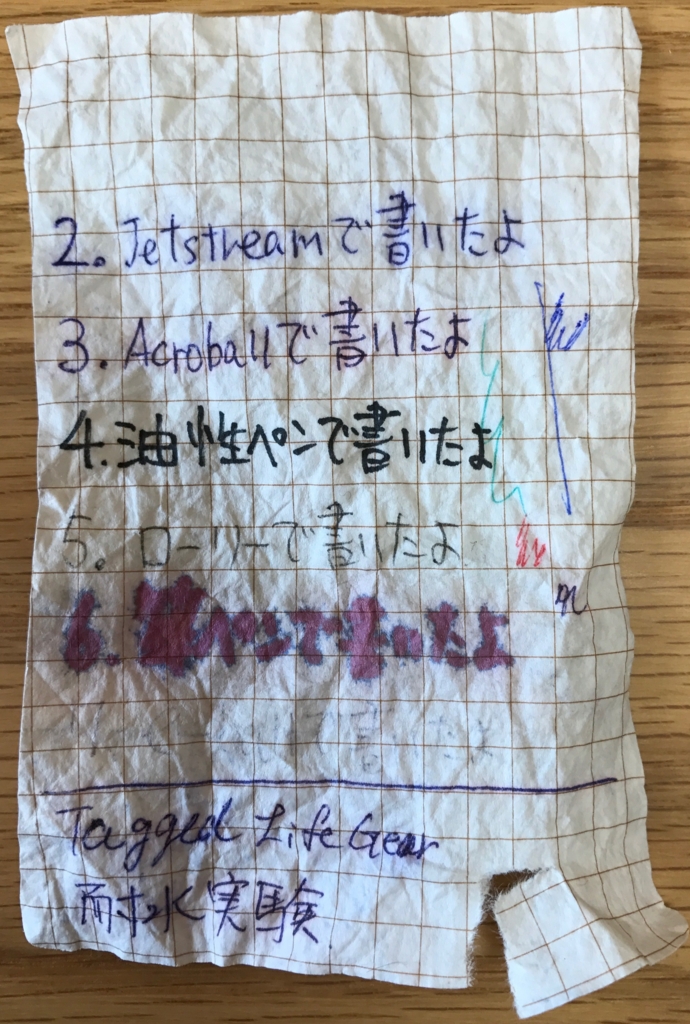 2. Jetstreamで書いたよ
3. Acroballで書いたよ
4. 油性ペンで書いたよ
5. ローリーで書いたよ
6. ペンで書いたよ
で書いたよ
Tagged Life Gear
耐水実験